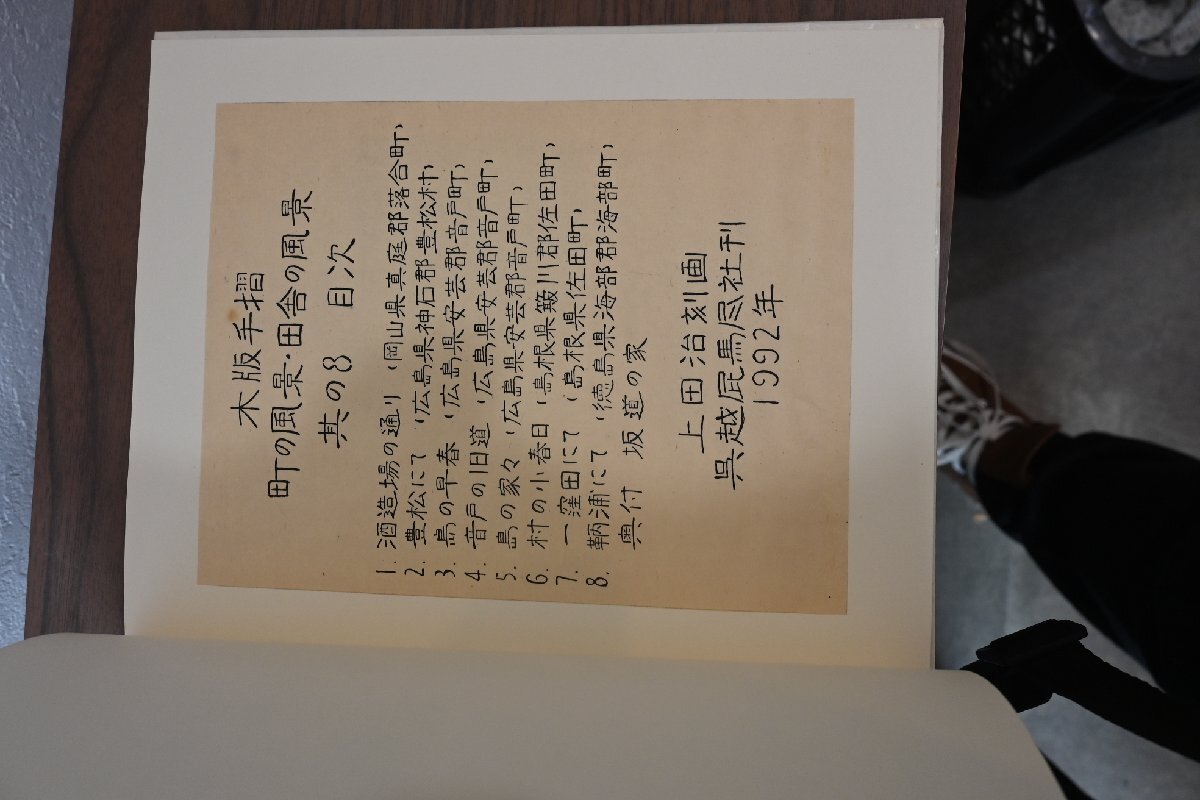 木版手摺
町の風景・田舎の風景
其の8 目次
1. 酒造場の通り (岡山県真庭郡落合町)
2. 豊松にて (広島県神石郡豊松村)
3. 島の早春 (広島県安芸郡音戸町)
4. 音戸の旧道 (広島県安芸郡音戸町)
5. 島の家々 (広島県安芸郡音戸町)
6. 村の小春日 (島根県簸川郡佐田町)
7. 一窪田にて (島根県佐田町)
8. 鞆浦にて (徳島県海部郡海部町)
奥付 坂道の家
上田治刻画
呉越屁馬尽社刊
1992年